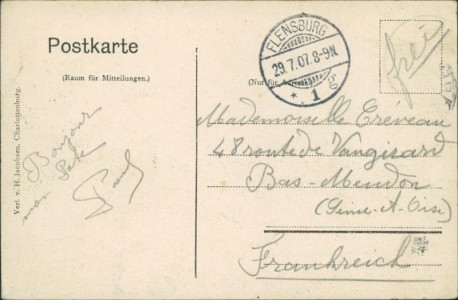 Postkarte
(Raum für Mitteilungen.)
(Nur für
FLENSBURG
29.7.07.8-9N.
* 1 S
frei
Verl. v. H. Jacobsen, Charlottenburg.
Bonjour
mon
Paul
Mademoiselle Créveau
48 route de Vangisard
Bas-Meudon
(Seine-et-Oise)
Frankreich